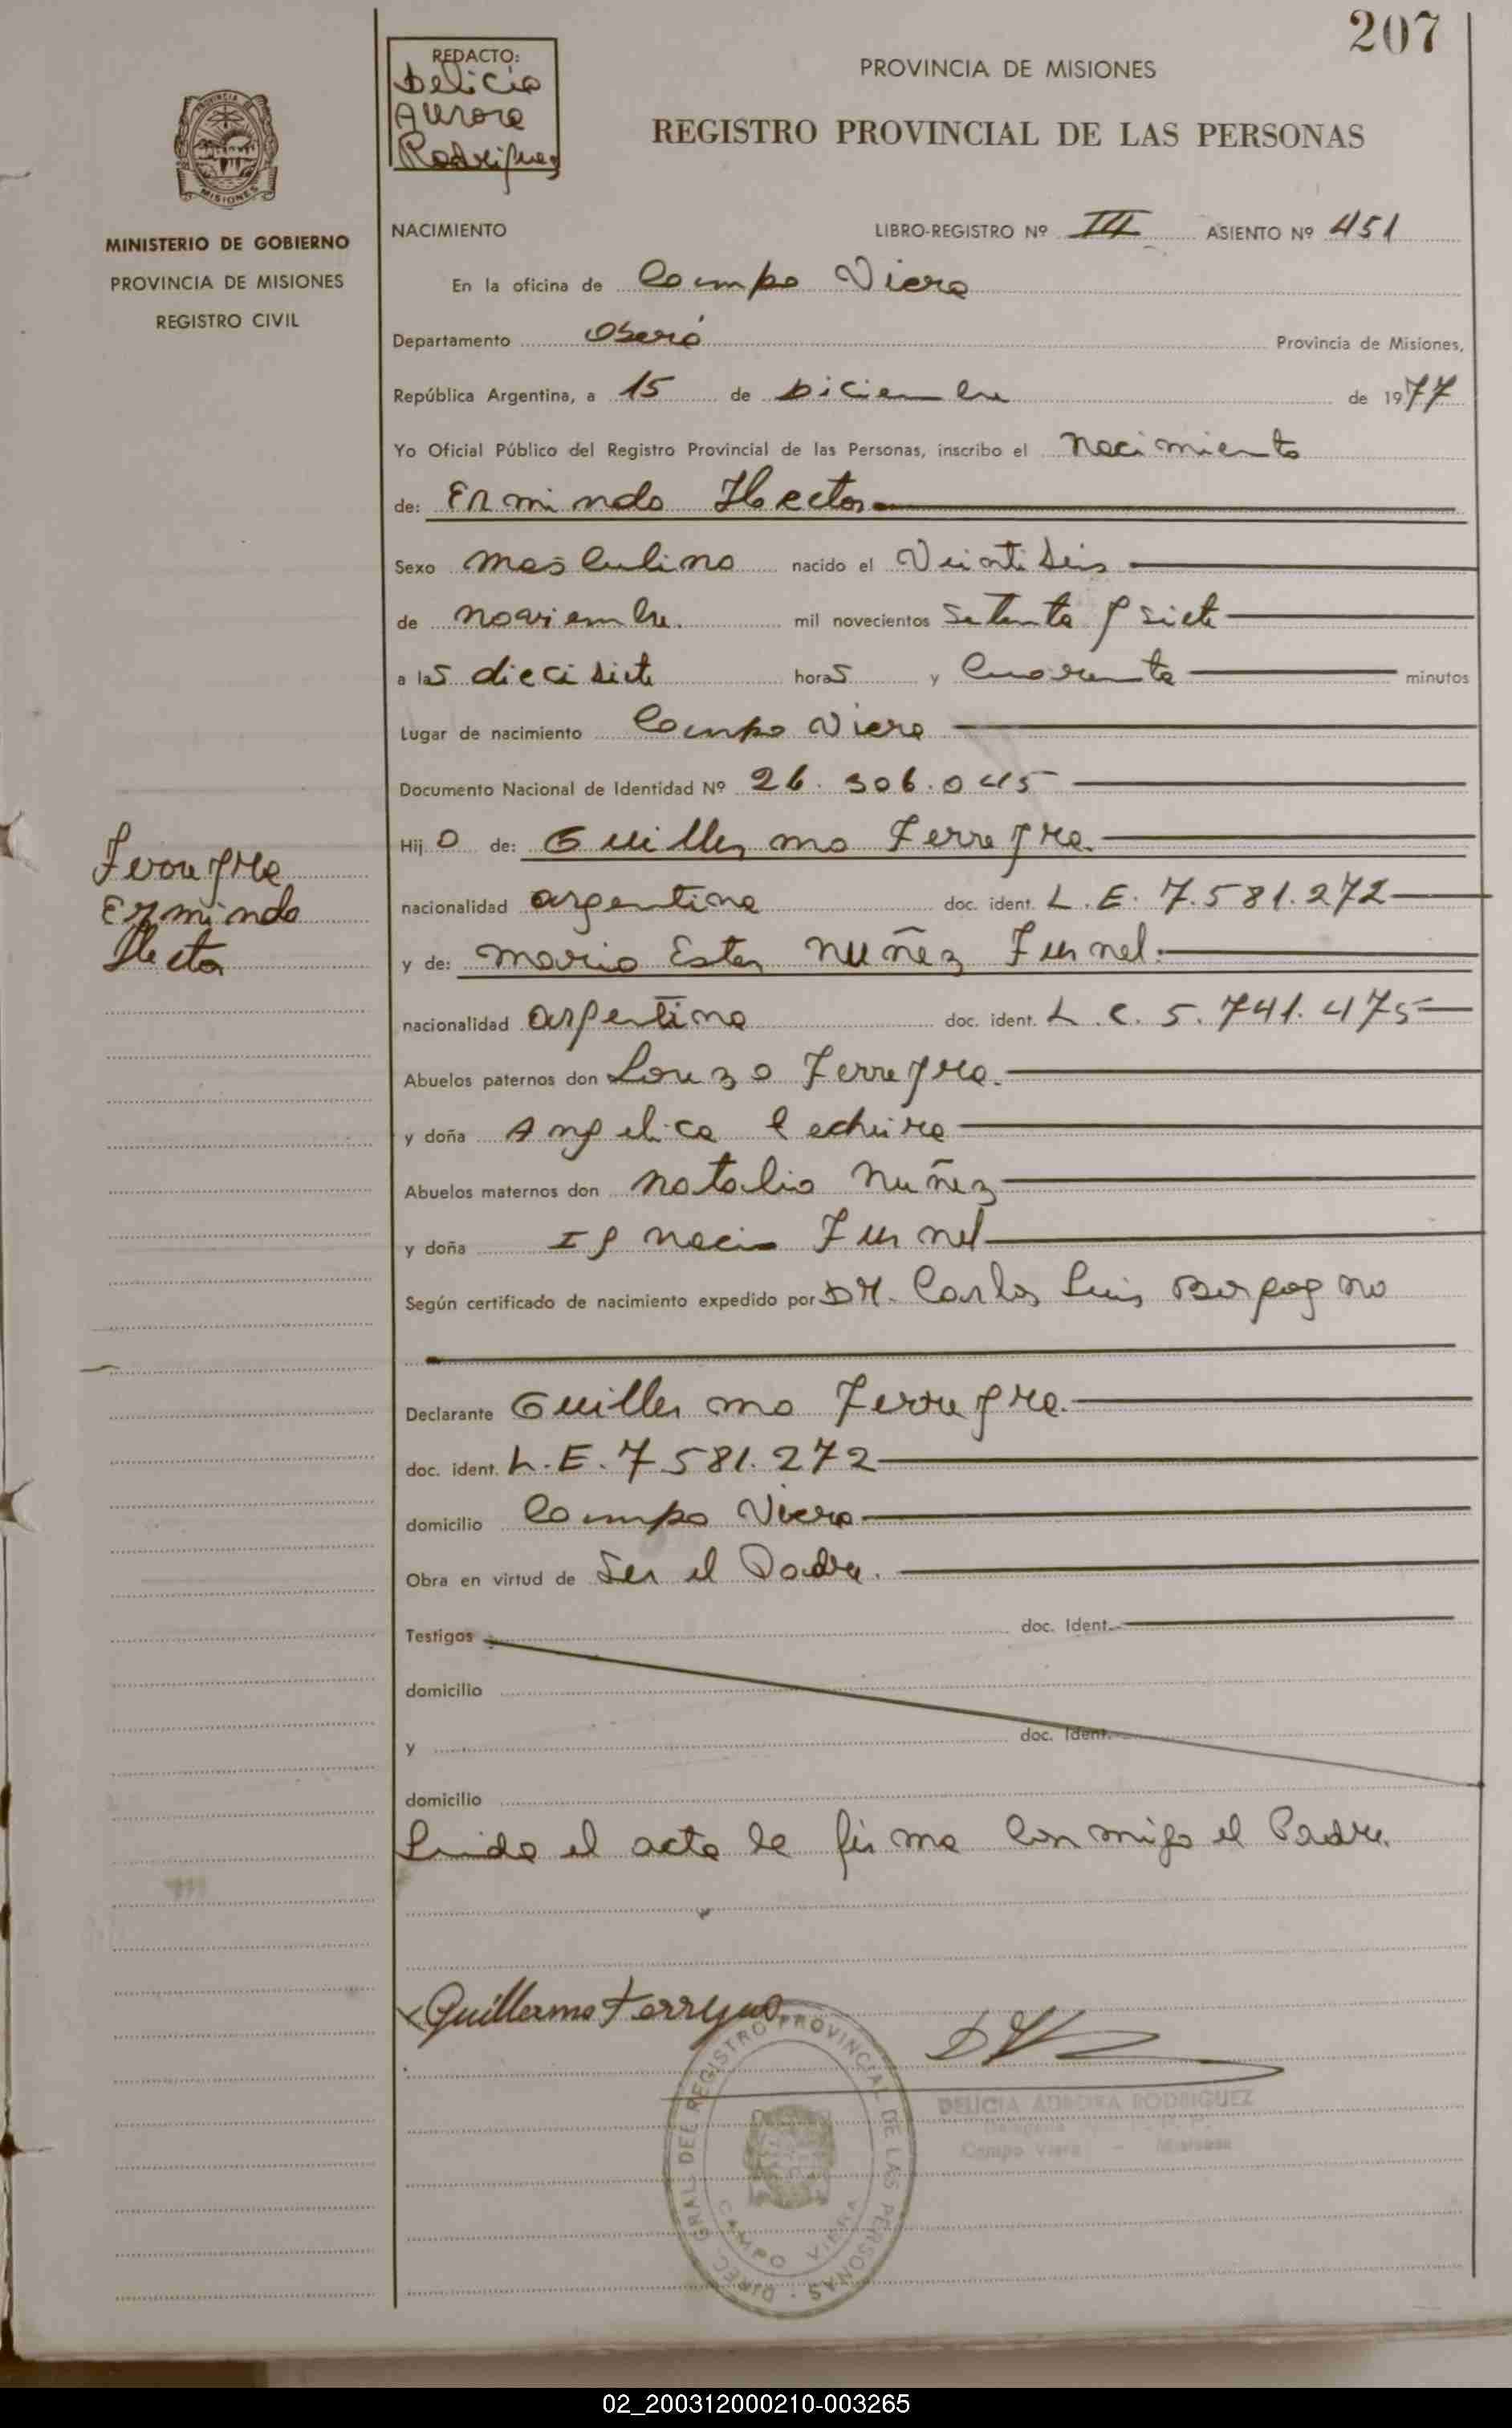 207
REDACTO:
Delicia
Aurora
Rodriguez
PROVINCIA DE MISIONES
REGISTRO PROVINCIAL DE LAS PERSONAS
MISIONES
MINISTERIO DE GOBIERNO
PROVINCIA DE MISIONES
REGISTRO CIVIL
NACIMIENTO LIBRO-REGISTRO Nº III ASIENTO Nº 451
En la oficina de Campo Viera
Departamento Oberá Provincia de Misiones,
República Argentina, a 15 de Diciembre de 1977
Yo Oficial Público del Registro Provincial de las Personas, inscribo el Nacimiento
de: Ermindo Hector
Sexo Masculino nacido el Veintiseis
de Noviembre. mil novecientos Setenta y siete
a las diecisiete horas y Cuarenta minutos
Lugar de nacimiento Campo Viera
Documento Nacional de Identidad Nº 26.306.045
Hijo de: Guillermo Ferreyra.
nacionalidad argentina doc. ident. L.E. 7.581.272
y de: Maria Ester Nuñez Furnel.
nacionalidad argentina doc. ident. L.C. 5.741.475
Abuelos paternos don Lorenzo Ferreyra.
y doña Angelica
Abuelos maternos don Natalio Nuñez
y doña Ignacia Furnel
Según certificado de nacimiento expedido por DR. Carlos Luis
Declarante Guillermo Ferreyra.
doc. ident. L.E. 7.581.272
domicilio Campo Viera
Obra en virtud de Ser el Padre.
Testigos doc. Ident.
domicilio
y doc. Ident.
domicilio
Leida el acta la firma conmigo el Padre.
Ferreyra
Ermindo
Hector
Guillermo Ferreyra
DIREC. GRAL. DEL REGISTRO PROVINCIAL DE LAS PERSONAS
CAMPO VIERA
DELICIA AURORA RODRIGUEZ
Campo Viera - Misiones
02_200312000210-003265